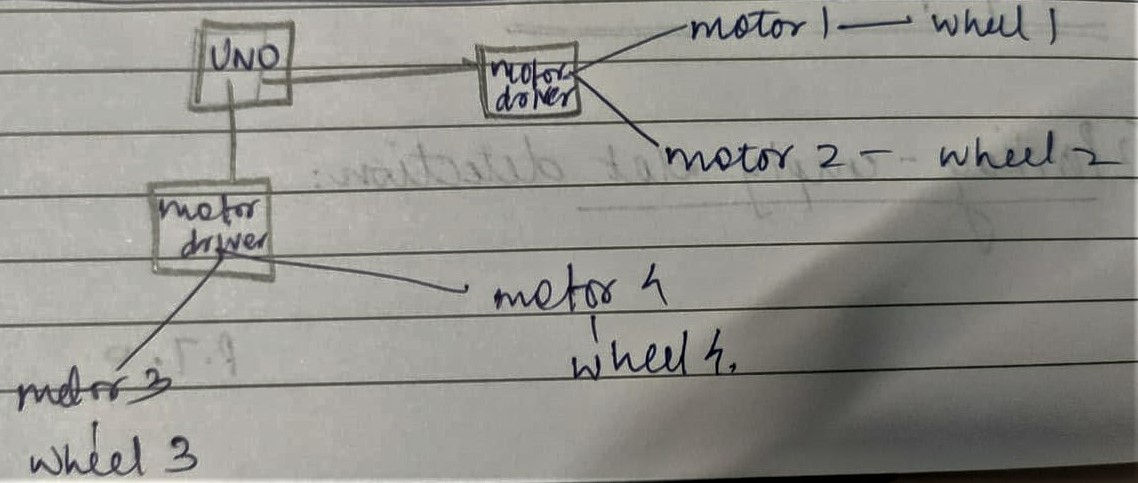 UNO
motor driver
motor 1 — wheel 1
motor 2 - wheel 2
motor driver
motor 4
wheel 4.
motor 3
wheel 3